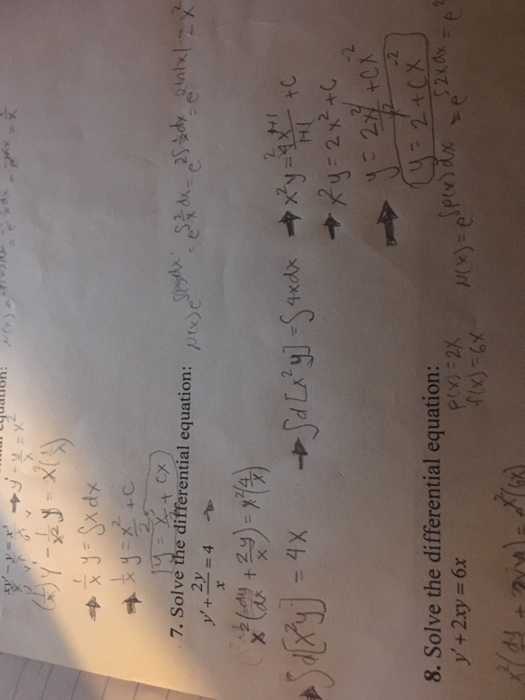 xy' - y = x³
(1/x) y' - 1/x² y = x²(1/x)
→ 1/x y = ∫x dx
→ 1/x y = x²/2 + C
y = x³/2 + Cx
7. Solve the differential equation:
y' + 2y/x = 4 →
N(x) e^∫p(x)dx = e^∫2/x dx = e^2∫1/x dx = e^2ln|x| = x²
x²(dy/dx + 2y/x) = x²(4/x)
→ ∫d[x²y] = 4x → ∫d[x²y] = ∫4xdx → x²y = 4x^1+1/1+1 + C
→ x²y = 2x² + C
→ y = 2x²/x² + Cx⁻²
y = 2 + Cx⁻²
8. Solve the differential equation:
y' + 2xy = 6x
p(x) = 2x
f(x) = 6x
N(x) = e^∫p(x)dx = e^∫2xdx = e